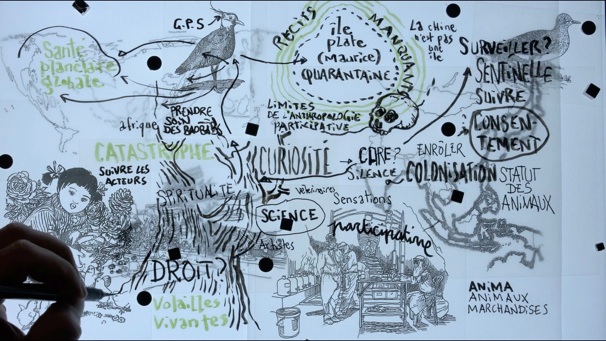 G.P.S
RÉCITS MANQUANTS
île
plate
(Maurice)
QUARANTAINE
La chine
n'est pas
une
île
SURVEILLER?
SENTINELLE
SUIVRE
CONSEN-
TEMENT
Santé
planétaire
globale
PRENDRE
SOIN
DES BAOBABS
afrique
LIMITES
DE L'ANTHROPOLOGIE
PARTICIPATIVE
CATASTROPHE
SUIVRE LES
ACTEURS
CURIOSITÉ
CARE?
SILENCE
ENRÔLER
COLONISATION
STATUT
DES
ANIMAUX
SPIRITUALITÉ
Vétérinaires
Sensations
SCIENCE
participative
Artistes
DROIT?
Volailles
vivantes
ANIMA
ANIMAUX
MARCHANDISES